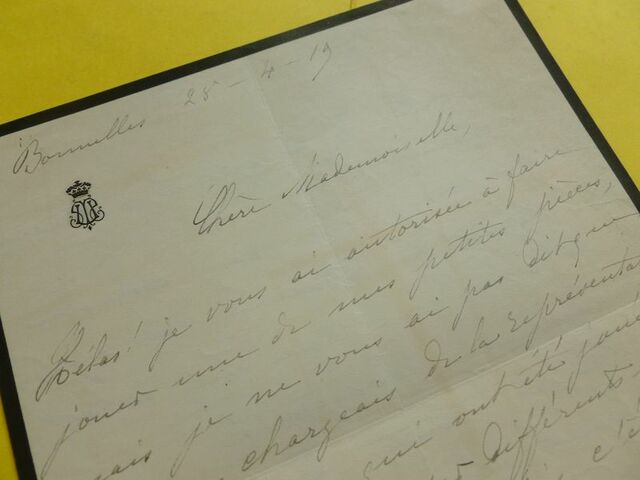 Bonnelles 28-4-19
Chère Mademoiselle,
Hélas! je vous ai autorisée à faire
jouer une de mes petites pièces,
mais je ne vous ai pas dit que
chargeais de la représentat
qui ont été joué
différents,
c'é